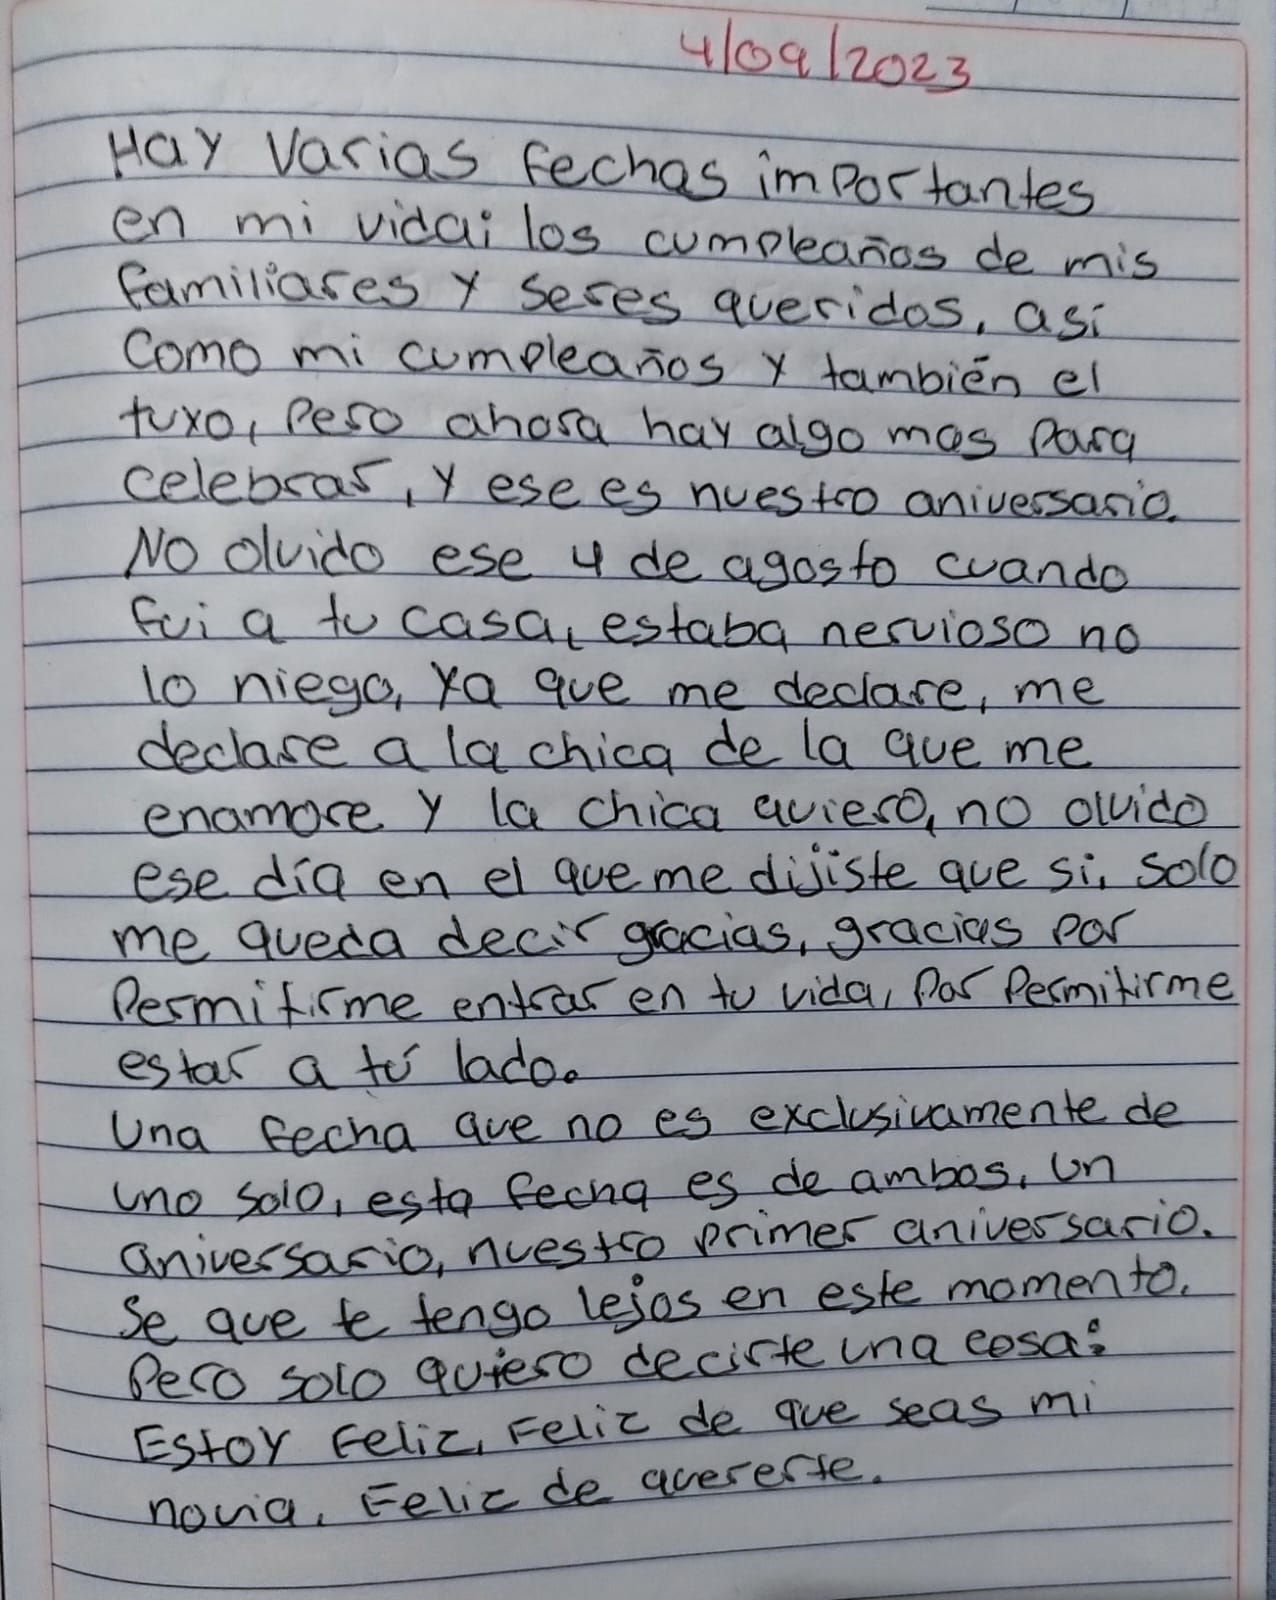 4/09/2023
Hay varias fechas importantes
en mi vida; los cumpleaños de mis
familiares y seres queridos, así
como mi cumpleaños y también el
tuyo, pero ahora hay algo mas para
celebrar, y ese es nuestro aniversario.
No olvido ese 4 de agosto cuando
fui a tu casa, estaba nervioso no
lo niego, ya que me declare, me
declare a la chica de la que me
enamore y la chica quiero, no olvido
ese día en el que me dijiste que si, solo
me queda decir gracias, gracias por
permitirme entrar en tu vida, por permitirme
estar a tú lado.
Una fecha que no es exclusivamente de
uno solo, esta fecha es de ambos, un
aniversario, nuestro primer aniversario.
Se que te tengo lejos en este momento.
Pero solo quiero decirte una cosa:
Estoy Feliz, Feliz de que seas mi
novia, Feliz de quererte.